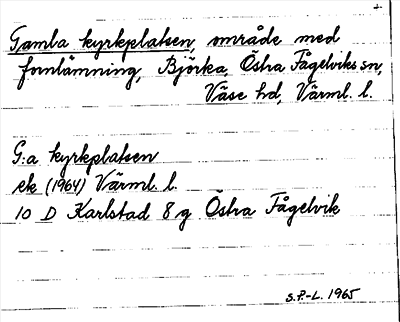 Gamla kyrkplatsen, område med
fornlämning, Björka, Östra Fågelviks sn,
Väse hd, Värml. l.
G:a kyrkplatsen
ek (1964) Värml. l.
10 D Karlstad 8 g Östra Fågelvik
S.P.-L. 1965